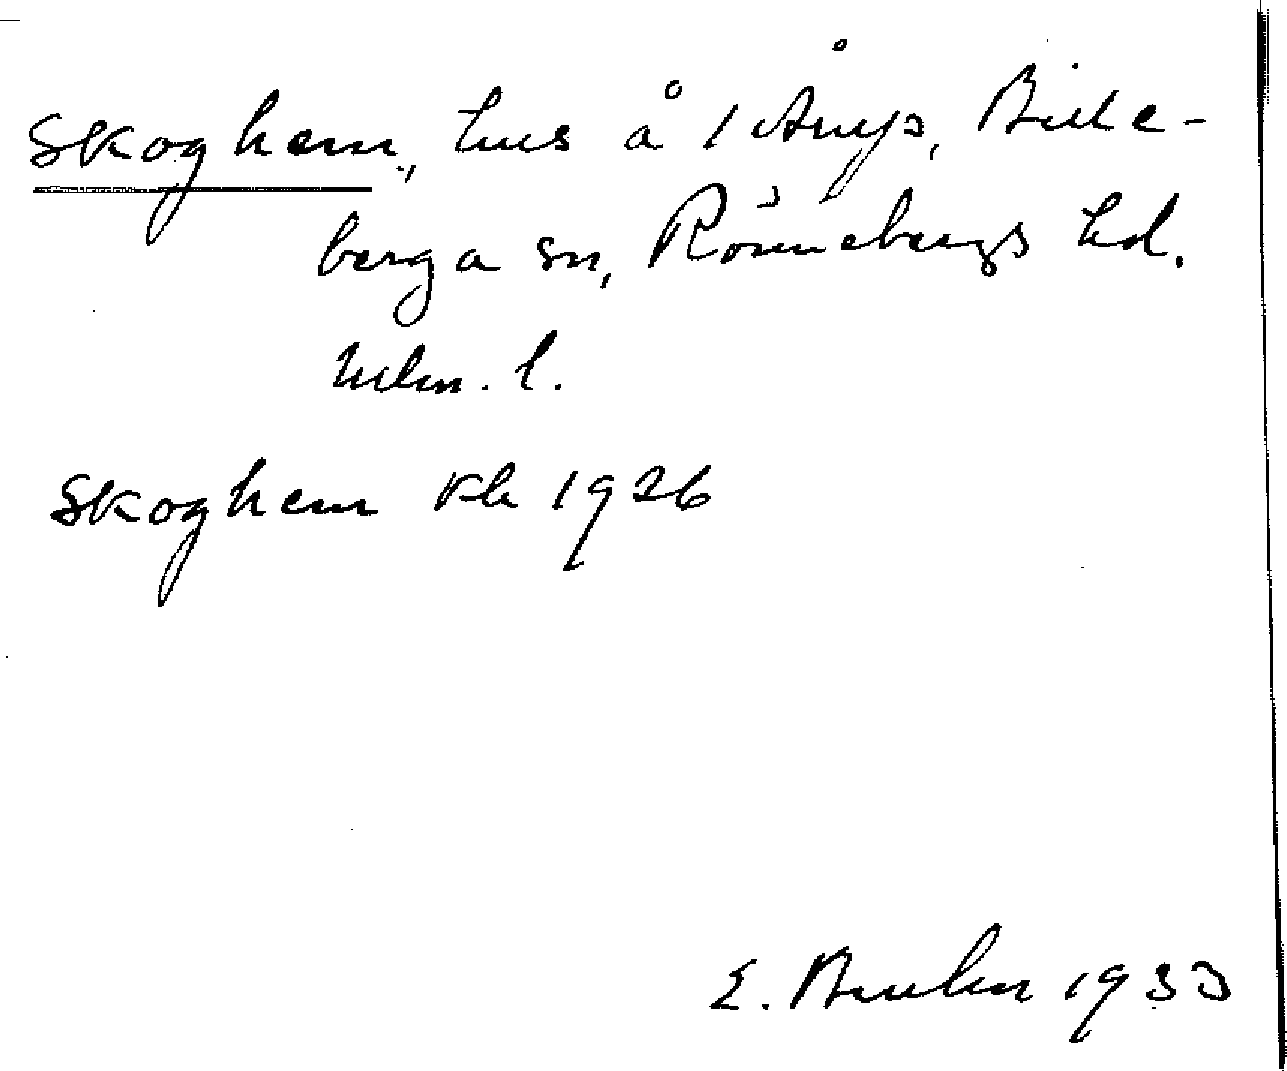 Skoghem, hus å 1 Anyp, Bille-
berga sn, Rönnebergs hd.
Mlm. l.
Skoghem Kb 1926
E. Bruhn 1933